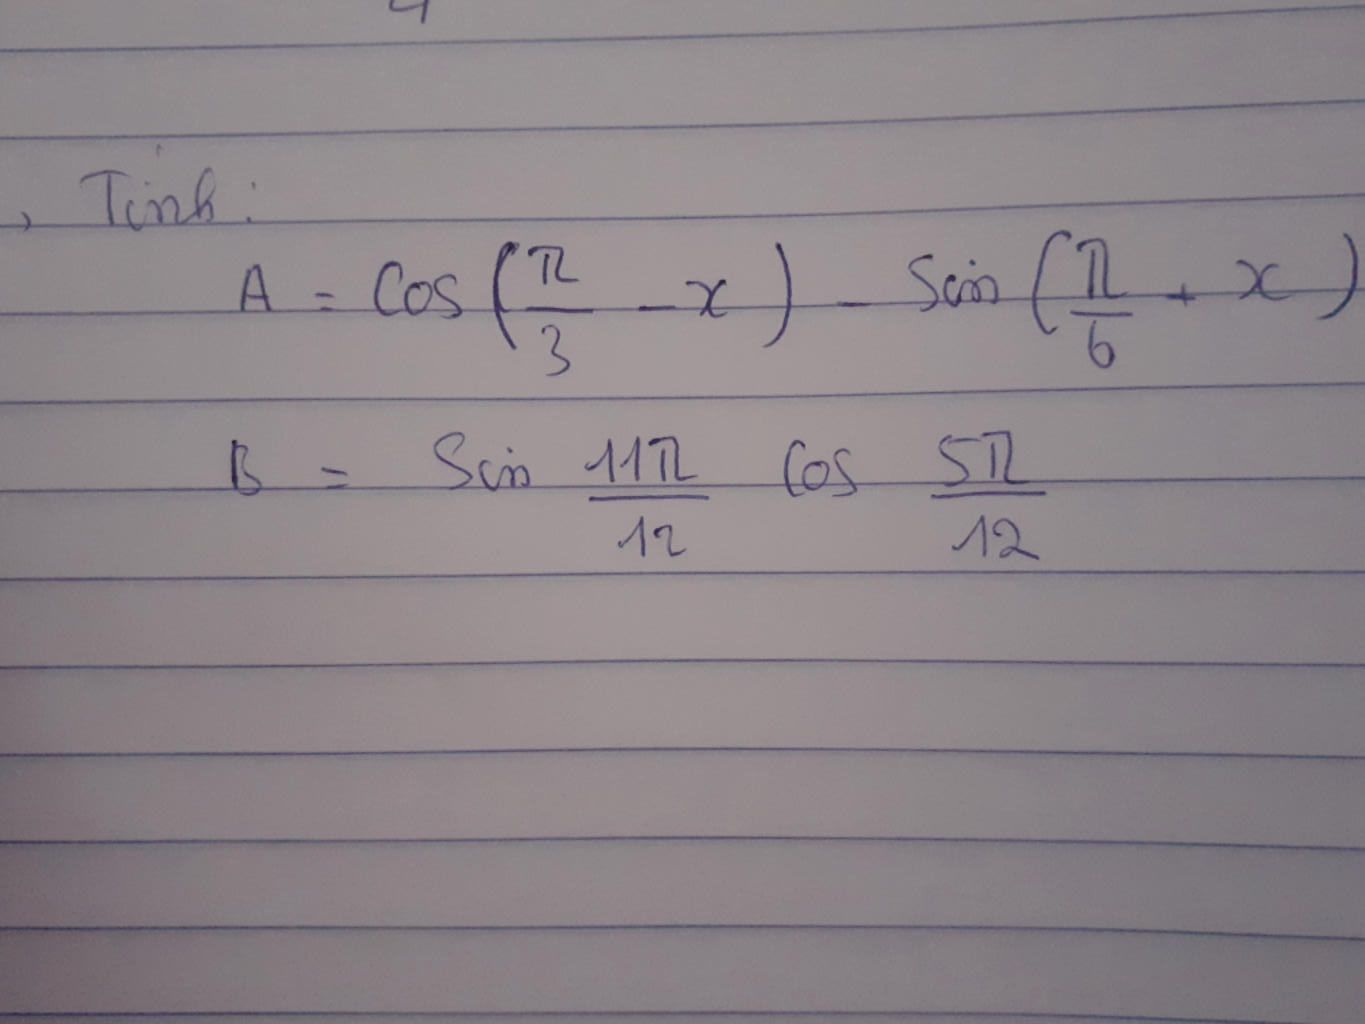 4
, Tính:
A = Cos (π/3 - x) - Sin (π/6 + x)
B = Sin 11π/12 Cos 5π/12